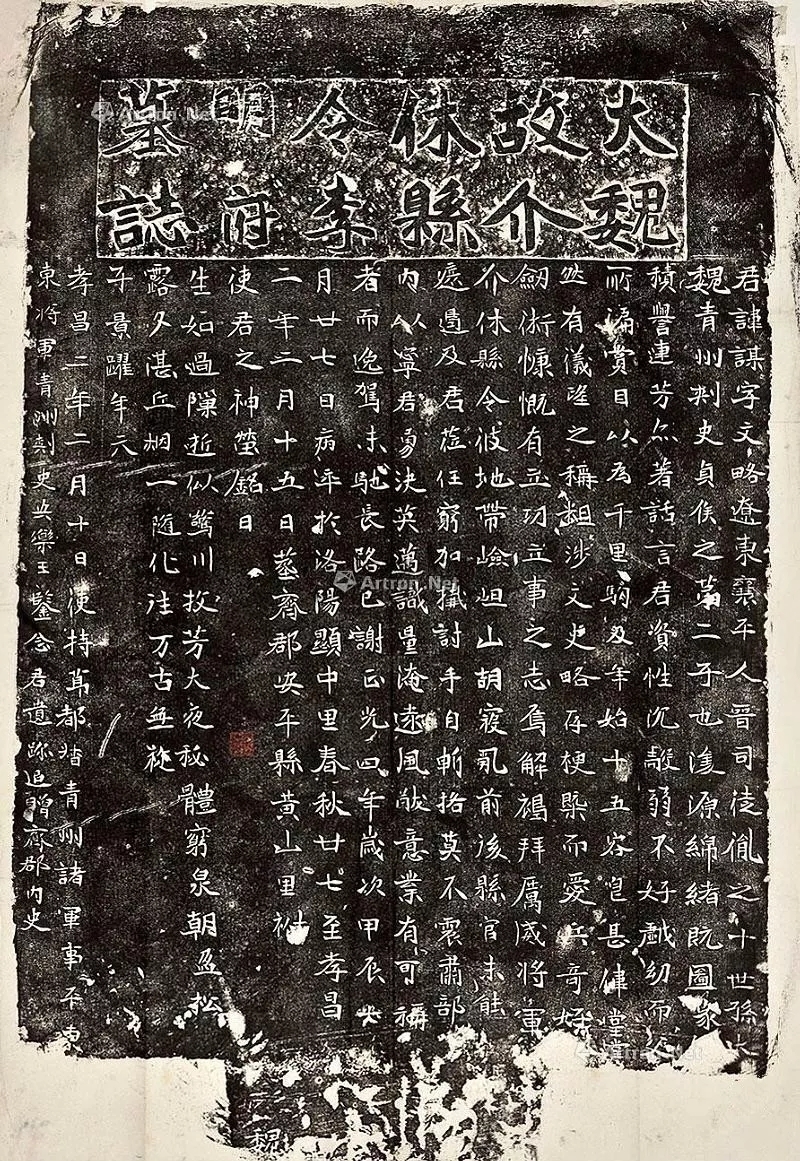 大魏
故介
休縣
令李
明府
墓誌
君諱謀字文略遼東襄平人晉司徒胤之十世孫大
魏青州刺史貞侯之第二子也浚源綿緒既圖篆
積譽連芳亦著話言君資性沉毅弱不好戲幼而
所謂賞目以為千里駒及年始十五容皃甚偉堂堂
然有儀望之稱粗涉文史略存梗槩而愛兵奇好
劒術慷慨有立功立事之志焉解褐拜厲威將軍
介休縣令彼地帶嶮岨山胡寇亂前後縣官未能
遏及君莅任窮加搆討手自斬挌莫不震肅部
內以寧君勇決英邁識量淹遠風猷意業有可稱
者而逸駕未馳長路已謝正光四年歲次甲辰
月廿七日病卒於洛陽顯中里春秋廿七至孝昌
二年二月十五日葬齊郡安平縣黃山里祔
使君之神塋銘曰
生如過隟逝似驚川收芳大夜秘體窮泉朝盈松
露夕湛丘烟一隨化往万古無旋
子景躍年六
孝昌二年二月十日使持節都督青州諸軍事平東
東將軍青州刺史安樂王鑒念君遺跡追贈齊郡內史
魏
Artron.Net
Artron.Net
Artron.Net